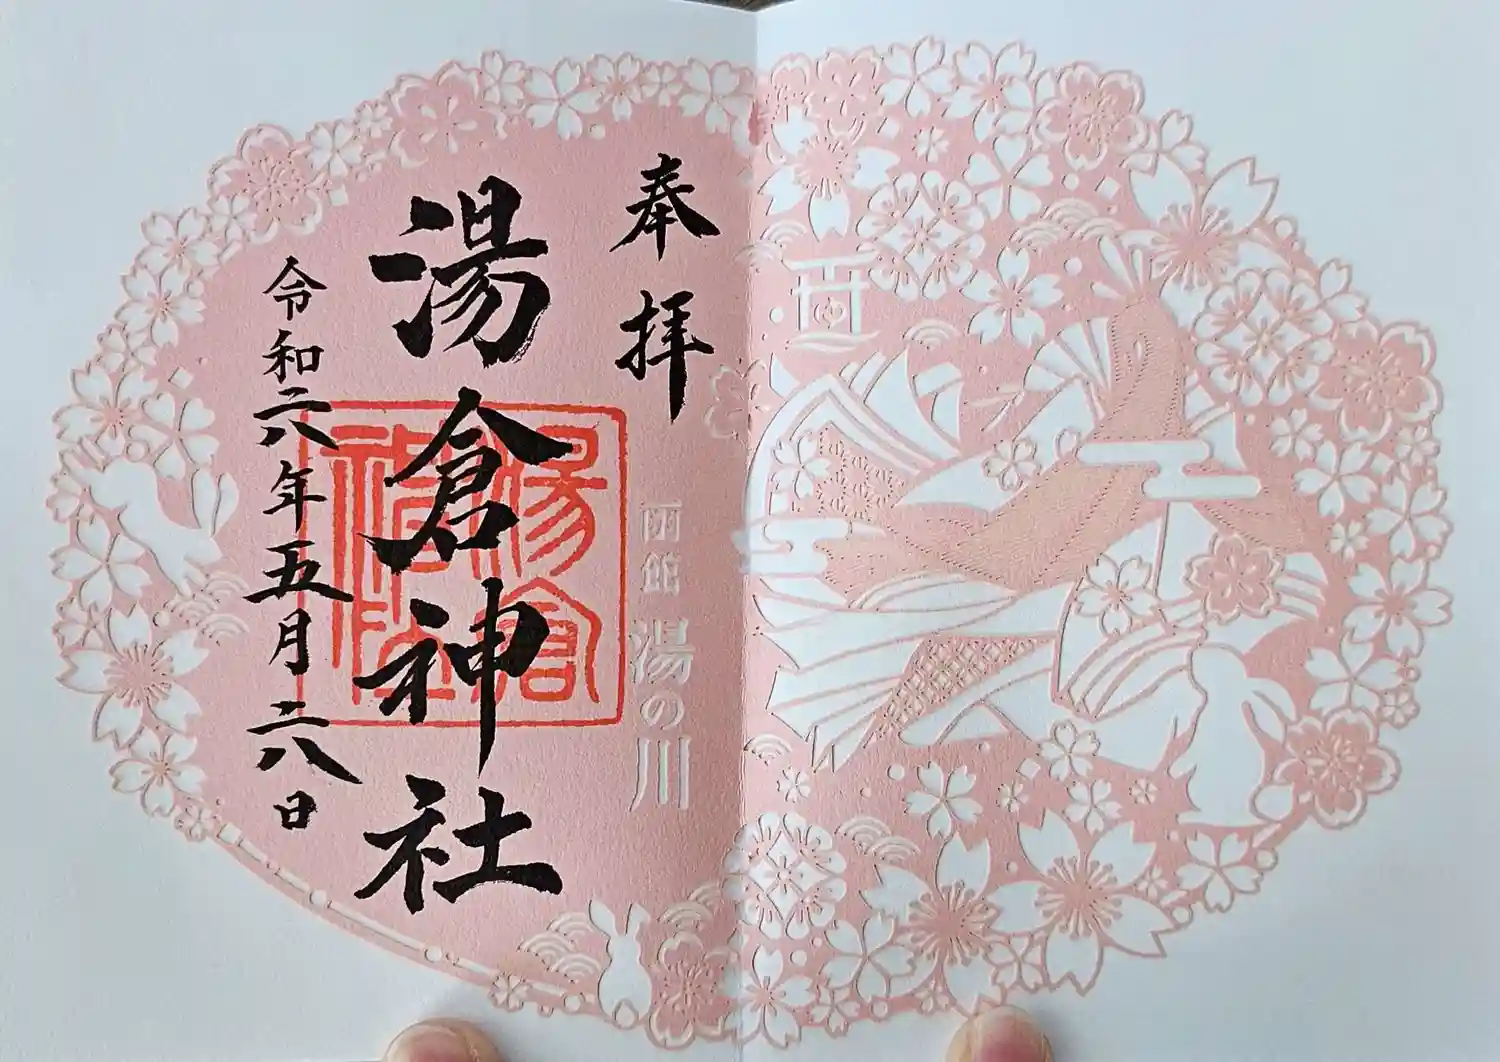 奉拝
函館 湯の川
湯倉神社
湯倉神社
令和六年五月二八日